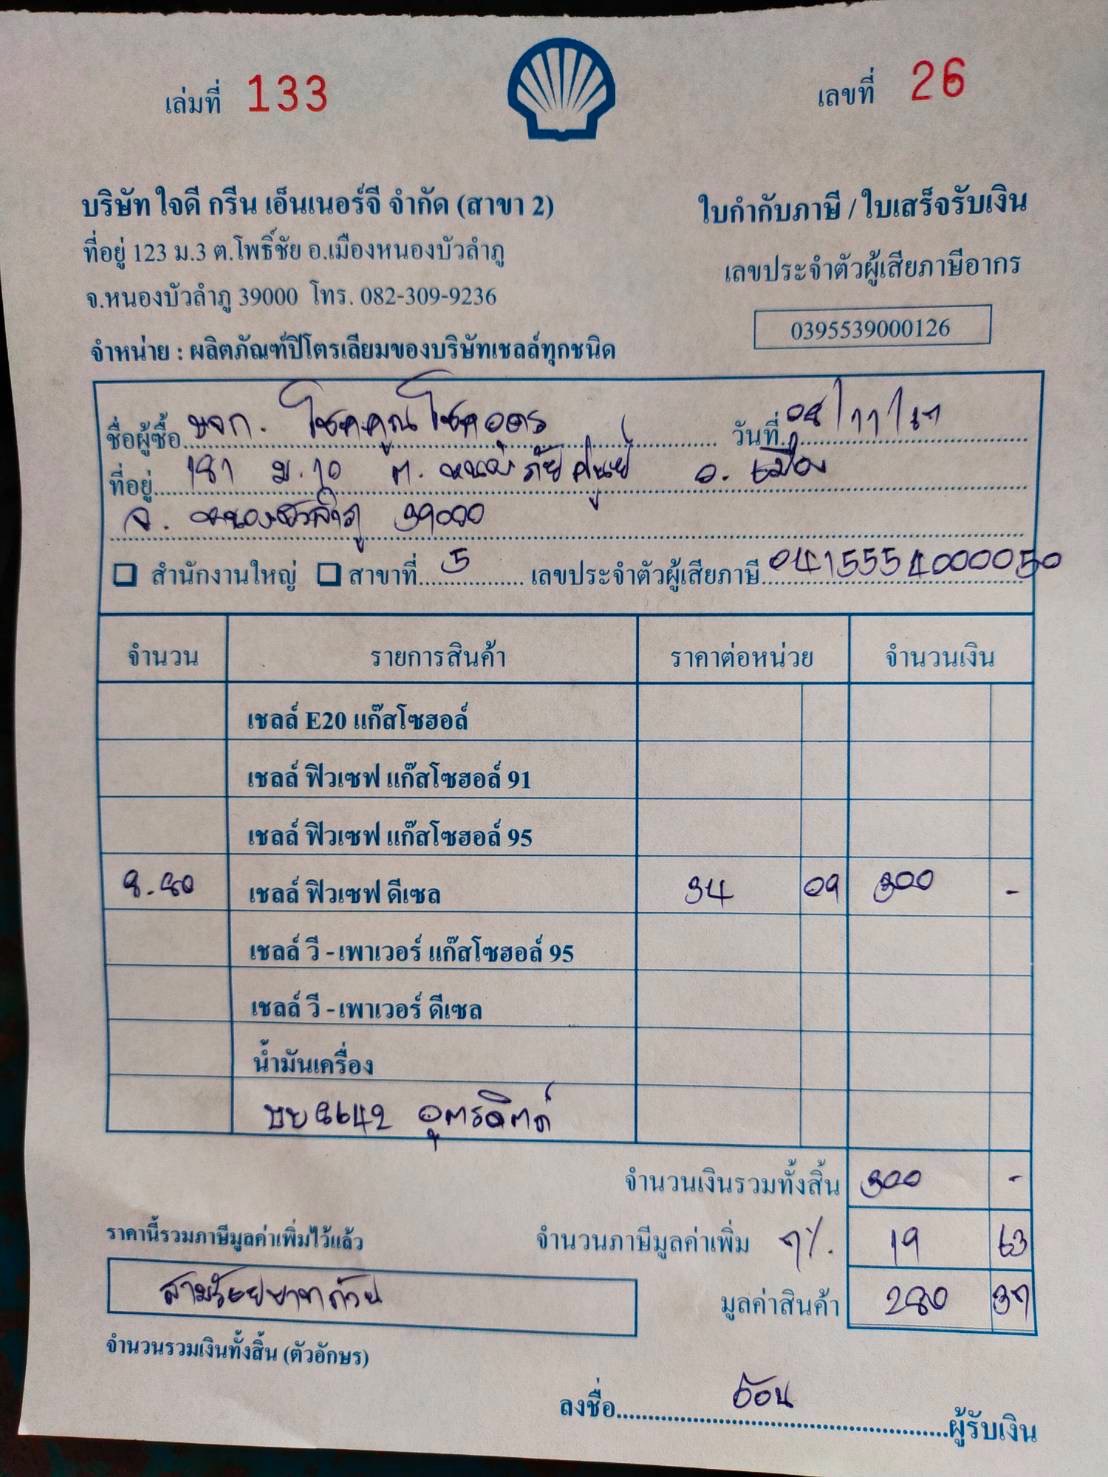 เล่มที่ 133
เลขที่ 26
บริษัท ใจดี กรีน เอ็นเนอร์จี จำกัด (สาขา 2)
ใบกำกับภาษี / ใบเสร็จรับเงิน
ที่อยู่ 123 ม.3 ต.โพธิ์ชัย อ.เมืองหนองบัวลำภู
เลขประจำตัวผู้เสียภาษีอากร
จ.หนองบัวลำภู 39000 โทร. 082-309-9236
0395539000126
จำหน่าย : ผลิตภัณฑ์ปิโตรเลียมของบริษัทเชลล์ทุกชนิด
ชื่อผู้ซื้อ หจก. โชคคูณโชค วันที่ 08/11/67
ที่อยู่ 181 ม.10 ต. หนองภัยศูนย์ อ. เมือง
จ. หนองบัวลำภู 39000
สำนักงานใหญ่ สาขาที่ 5 เลขประจำตัวผู้เสียภาษี 0415554000050
จำนวน รายการสินค้า ราคาต่อหน่วย จำนวนเงิน
เชลล์ E20 แก๊สโซฮอล์
เชลล์ ฟิวเซฟ แก๊สโซฮอล์ 91
เชลล์ ฟิวเซฟ แก๊สโซฮอล์ 95
8.80 เชลล์ ฟิวเซฟ ดีเซล 34 09 300 -
เชลล์ วี - เพาเวอร์ แก๊สโซฮอล์ 95
เชลล์ วี - เพาเวอร์ ดีเซล
น้ำมันเครื่อง
บบ 8642 อุตรดิตถ์
จำนวนเงินรวมทั้งสิ้น 300 -
ราคานี้รวมภาษีมูลค่าเพิ่มไว้แล้ว จำนวนภาษีมูลค่าเพิ่ม 7%. 19 63
สามร้อยบาทถ้วน มูลค่าสินค้า 280 37
จำนวนรวมเงินทั้งสิ้น (ตัวอักษร)
ลงชื่อ อ้อน ผู้รับเงิน